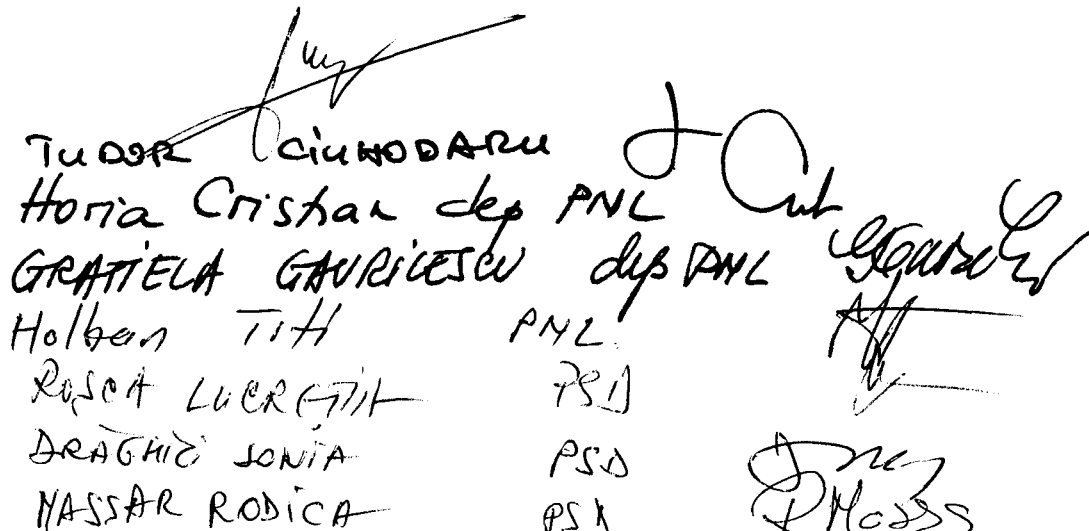 TUDOR CIUHODARU
Horia Cristian dep PNL
GRAȚIELA GAVRILESCU dep PNL
Holban Titi PNL
ROȘCA LUCREȚIA PSD
DRĂGHICI SONIA PSD
NASSAR RODICA PSD